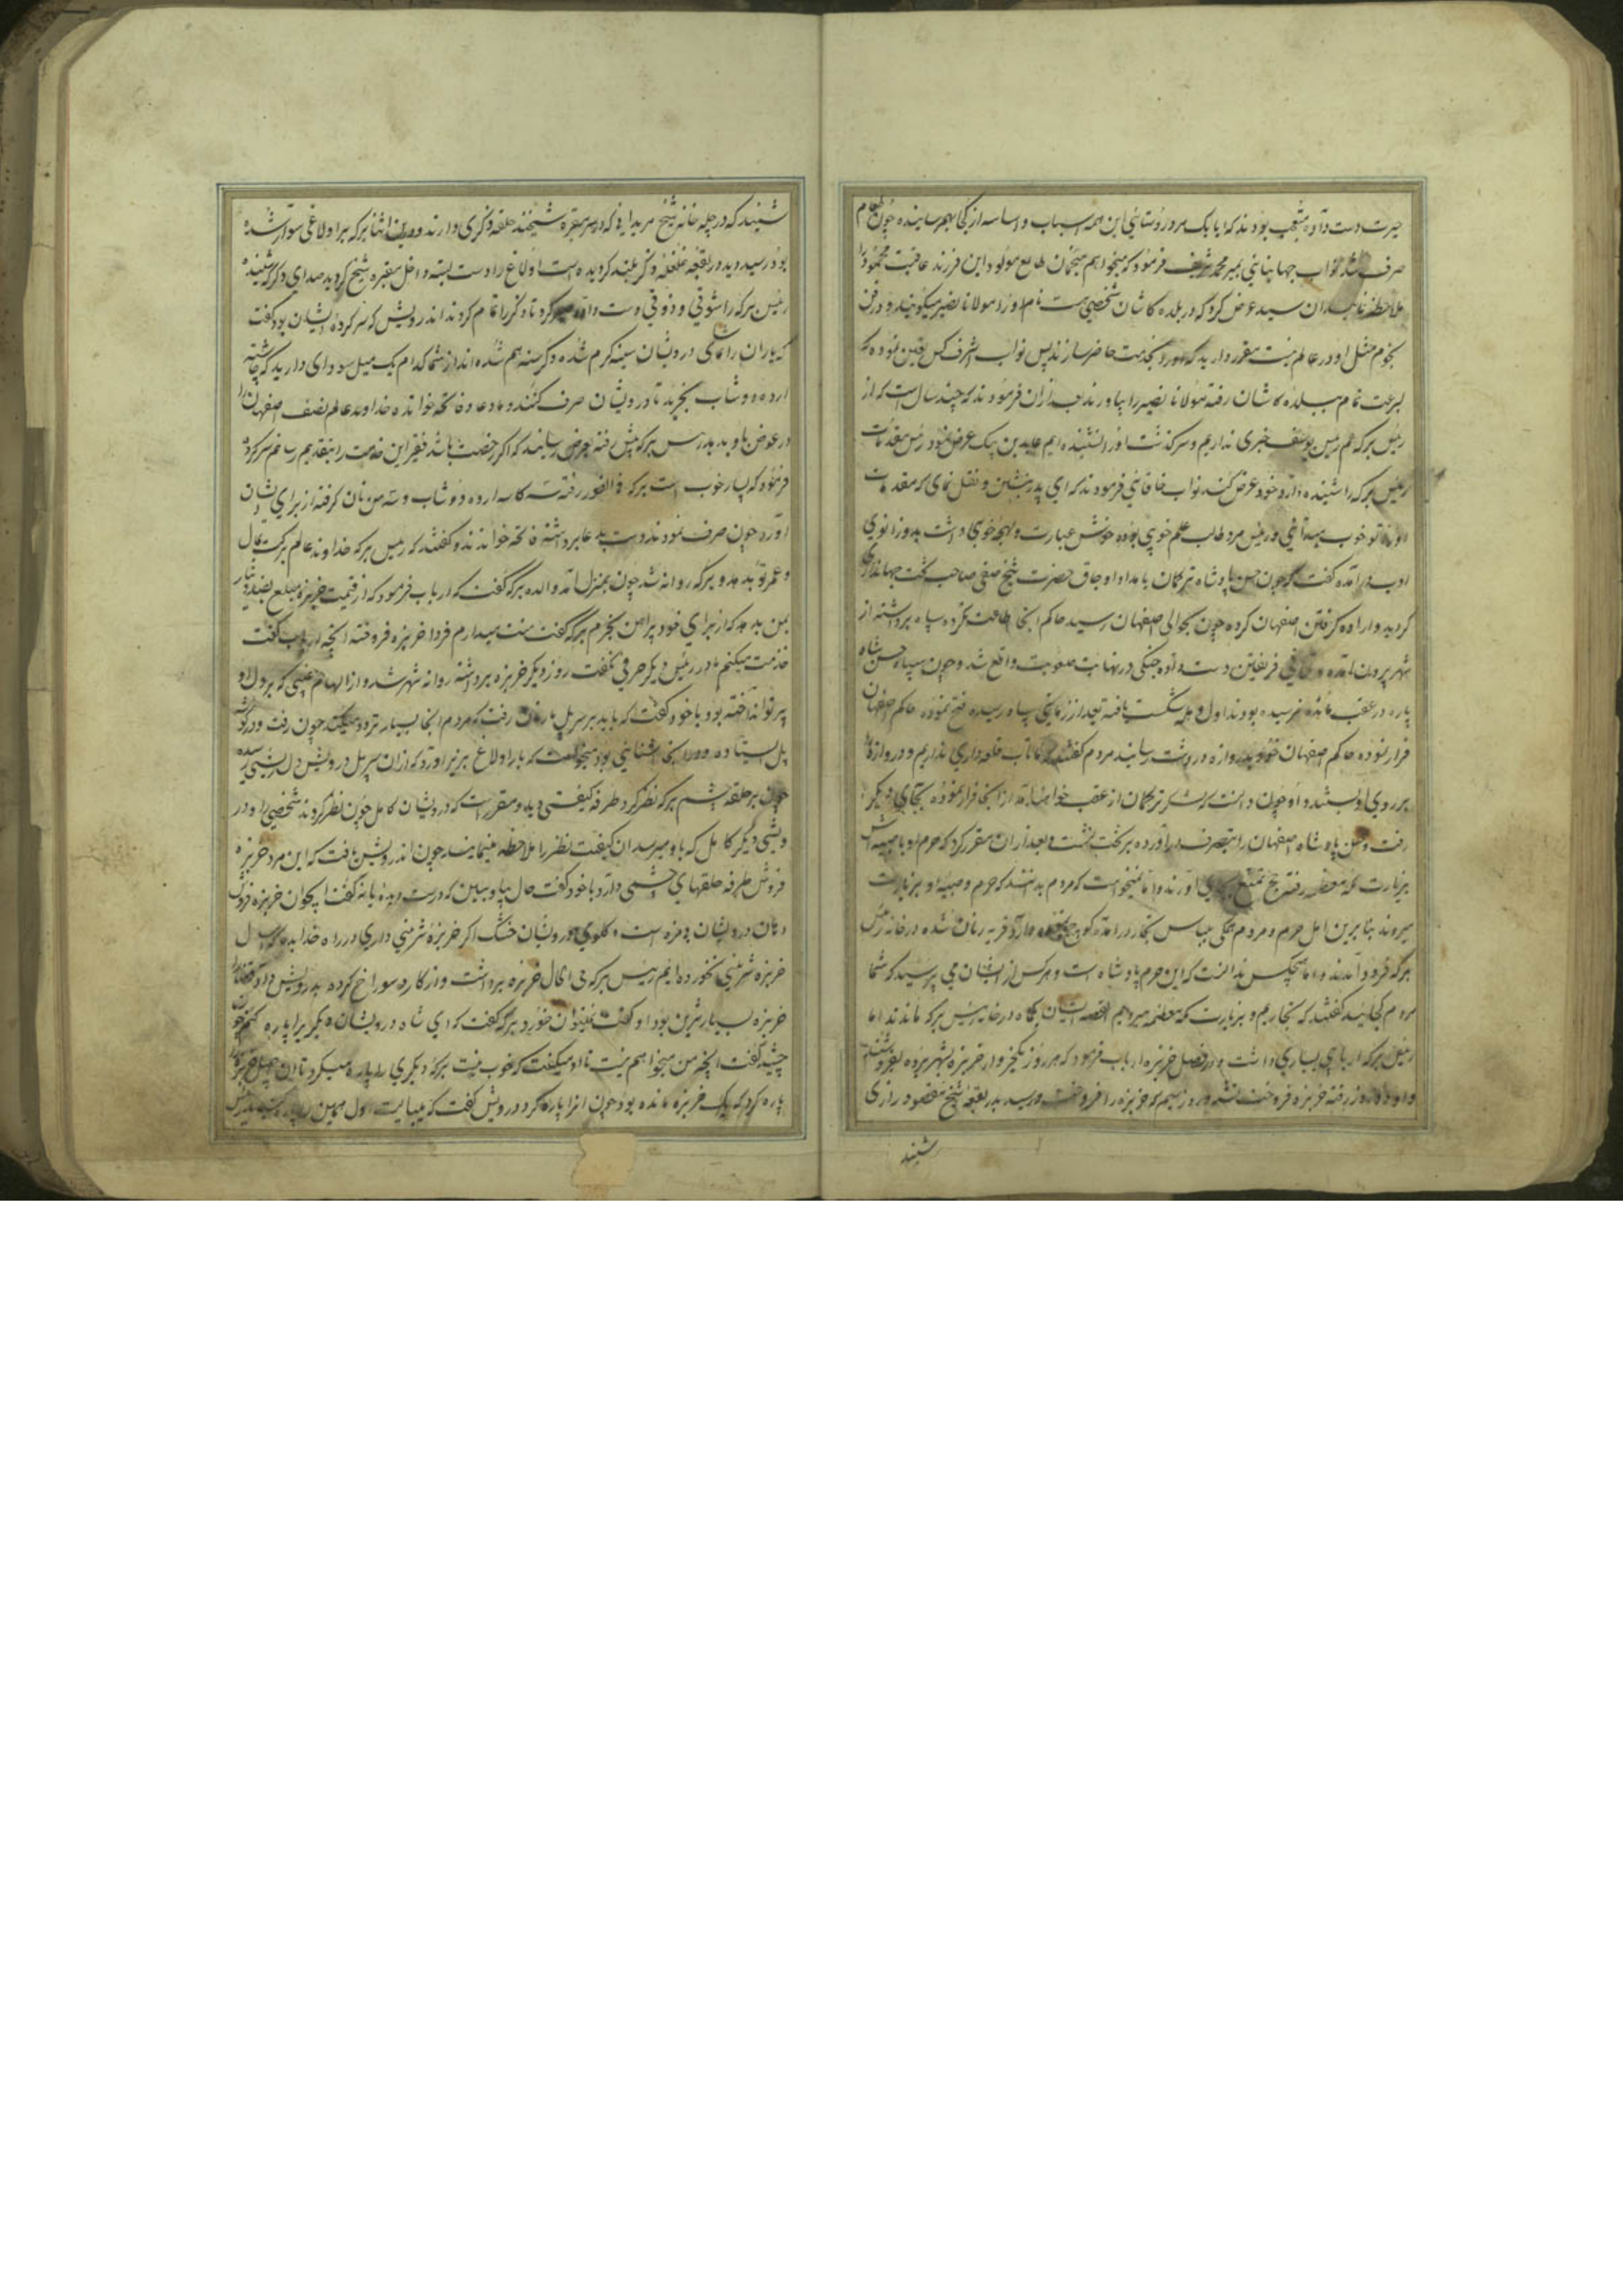 حیرت دست داده متعجب بودند که ایا یک مرد روستائی این همه اسباب و اساسه از کجا بهم رسانیده چون طعام
صرف شد نواب جهانبانی بمیر محمد شریف فرمود که میخواهم منجمان طالع مولود این فرزند عاقبت محمود را
ملاحظه نمایند ان سید عرض کرد که در بلده کاشان شخصی هست نام او را مولانا نصیر میگویند و در فن
نجوم مثل او در عالم نیست مقرر دارید که او را بخدمت حاضر سازند پس نواب اشرف کس تعین نموده که
بسرعت تمام ببلده کاشان رفته مولانا نصیر را بیاورند بعد از ان فرمودند که چند سال است که از
رئیس برکه عم رئیس یوسف خبری نداریم و سرکذشت او را نشنیده ایم عابدین بیک عرض نمود رئیس مقدمات
رئیس برکه را شنیده دارد خود عرض کند نواب خاقانی فرمودند که ای پدر بنشین و نقل نمای که مقدمات
او را تو خوب میدانی و رئیس مرد طالب علم خوبی بوده خوش عبارت و لهجه خوبی داشت بدو زانوی
ادب درامده گفت که چون حسن پادشاه ترکمان بامداد اوجاق حضرت شیخ صفی صاحب تخت جهانداری
کردید و اراده کرفتن اصفهان کرده چون بحوالی اصفهان رسید حاکم انجا اطاعت نکرده سپاه برداشته از
شهر بیرون امده و تلاقی فریقین دست داده جنکی در نهایت صعوبت واقع شد و چون سپاه حسن پادشاه
پاره در عقب مانده نرسیده بودند اول وهله شکست یافته بعد از زمانی سپاه رسیده فتح نموده حاکم اصفهان
فرار نموده حاکم اصفهان خود بدروازه در دشت رسانید مردم گفتند که ما تاب قلعه داری نداریم و دروازه را
بر روی او بستند و او چون دانست که لشکر ترکمان از عقب خواهند امد از انجا فرار نموده بجای دیگر
رفت و حسن پادشاه اصفهان را بتصرف دراورده بر تخت نشست و بعد از ان مقرر کرد که حرم او با صبیه اش
بزیارت مکه معظمه رفته حج تمتع بجای اورند و اما نمیخواست که مردم بدانند که حرم و صبیه او بزیارت
میروند بنابرین اهل حرم و مردم همگی بلباس تجار درامده کوچ نمودند قریه رنان شده در خانه رئیس
برکه فرود آمدند و اما هیچکس ندانست که این حرم پادشاه است و هرکس از ایشان می پرسید که شما
مردم کجائید گفتند که تجاریم و بزیارت مکه معظمه میرویم القصه ایشان یکماه در خانه رئیس برکه ماندند اما
رئیس برکه اربابی بسیاری داشت و در فصل خربزه ارباب فرمود که هر روز یکخروار خربزه بشهر برده بفروشند
و او دو روز رفته خربزه فروخت شد و روز سیم که خربزه را فروخت و رسید بدر بقعه شیخ مقصود رازی
شنید
شنید که در چله خانه شیخ مریدانی که در سر مقبره شیخند حلقه ذکری دارند و درین اثنا برکه بر اولاغی سوار شده
بود رسید دید در بقعه غلغله ذکر بلند کردیده است اولاغ را دست بسته داخل مقبره شیخ کردید صدای ذکر که شنید
رئیس برکه را شوقی و ذوقی دست داده صبر کرد تا ذکر را تمام کردند اندرویش که سرکرده ایشان بود گفت
که یاران را تمامی درویشان سینه کرم شده و کرسنه هم شده اند از شما کدام یک میل سودای دارید که چاشته
ارده و دوشاب بخرید تا درویشان صرف کنند و دعا و فاتحه خوانده خداوند عالم نصف اصفهان را
در عوض باو بدهد رئیس برکه پیش رفته بعرض رسانید که اگر رخصت باشد فقیر این خدمت را بتقدیم رسانم سرکرده
فرمود که بسیار خوب است برکه فی الفور رفته سه کاسه ارده و دوشاب و سه من نان کرفته از برای ایشان
آورد چون صرف نمودند دست بدعا برداشته فاتحه خواندند و گفتند که رئیس برکه خداوند عالم برکت بمال
و عمر تو بدهد و برکه روانه شد چون بمنزل آمد والده برکه گفت که ارباب فرمود که از قیمت خربزه مبلغ بضد دینار
بمن بدهد که از برای خود پیراهن بخرم برکه گفت منت میدارم فردا خربزه فروخته انچه ارباب گفت
خدمت میکنم مادر رئیس دیگر حرفی نگفت روز دیگر خربزه برداشته روانه شهر شد و از الهام غیبی که بر دل او
پرتو انداخته بود با خود گفت که باید بر سر پل ماربان رفت که مردم انجا بسیار تردد میکنند چون رفت و در کوشه
پل ایستاده و در انجا اشنایی بود میخواست که بار اولاغ بزیر اورد که از ان سر پل درویش دل ریشی رسیده
چون بر حلقه چشم برکه نظر کرد طرفه کیفیتی دید و مقرر است که درویشان کامل چون نظر کردند شخصی را و در
ویشی دیگر کامل که باو میرسد ان کیفیت نظر را ملاحظه مینمایند چون اندرویش یافت که این مرد خربزه
فروش طرفه حلقهای چشمی دارد با خود گفت حال بیا و ببین که درست دیده یا نه گفت ایجوان خربزه فروش
دهان درویشان بیمزه است و گلوی درویشان خشک اکر خربزه شیرینی داری در راه خدا بده که امسال
خربزه شیرینی نخورده ایم رئیس برکه فی الحال خربزه برداشت و از کارد سوراخ کرده بدرویش داد قضا را
خربزه بسیار شیرین بود او گفت نمیتوان خورد برکه گفت که ای شاه درویشان دیگر یرا پاره کنم چون
چشید گفت انچه من میخواهم نیست تا او میگفت که خوب نیست برکه دیگری را پاره میکرد تا ان چهل خربزه را
پاره کرد که یک خربزه مانده بود چون انرا پاره کرد درویش گفت که میبایست اول همین را پاره کنید